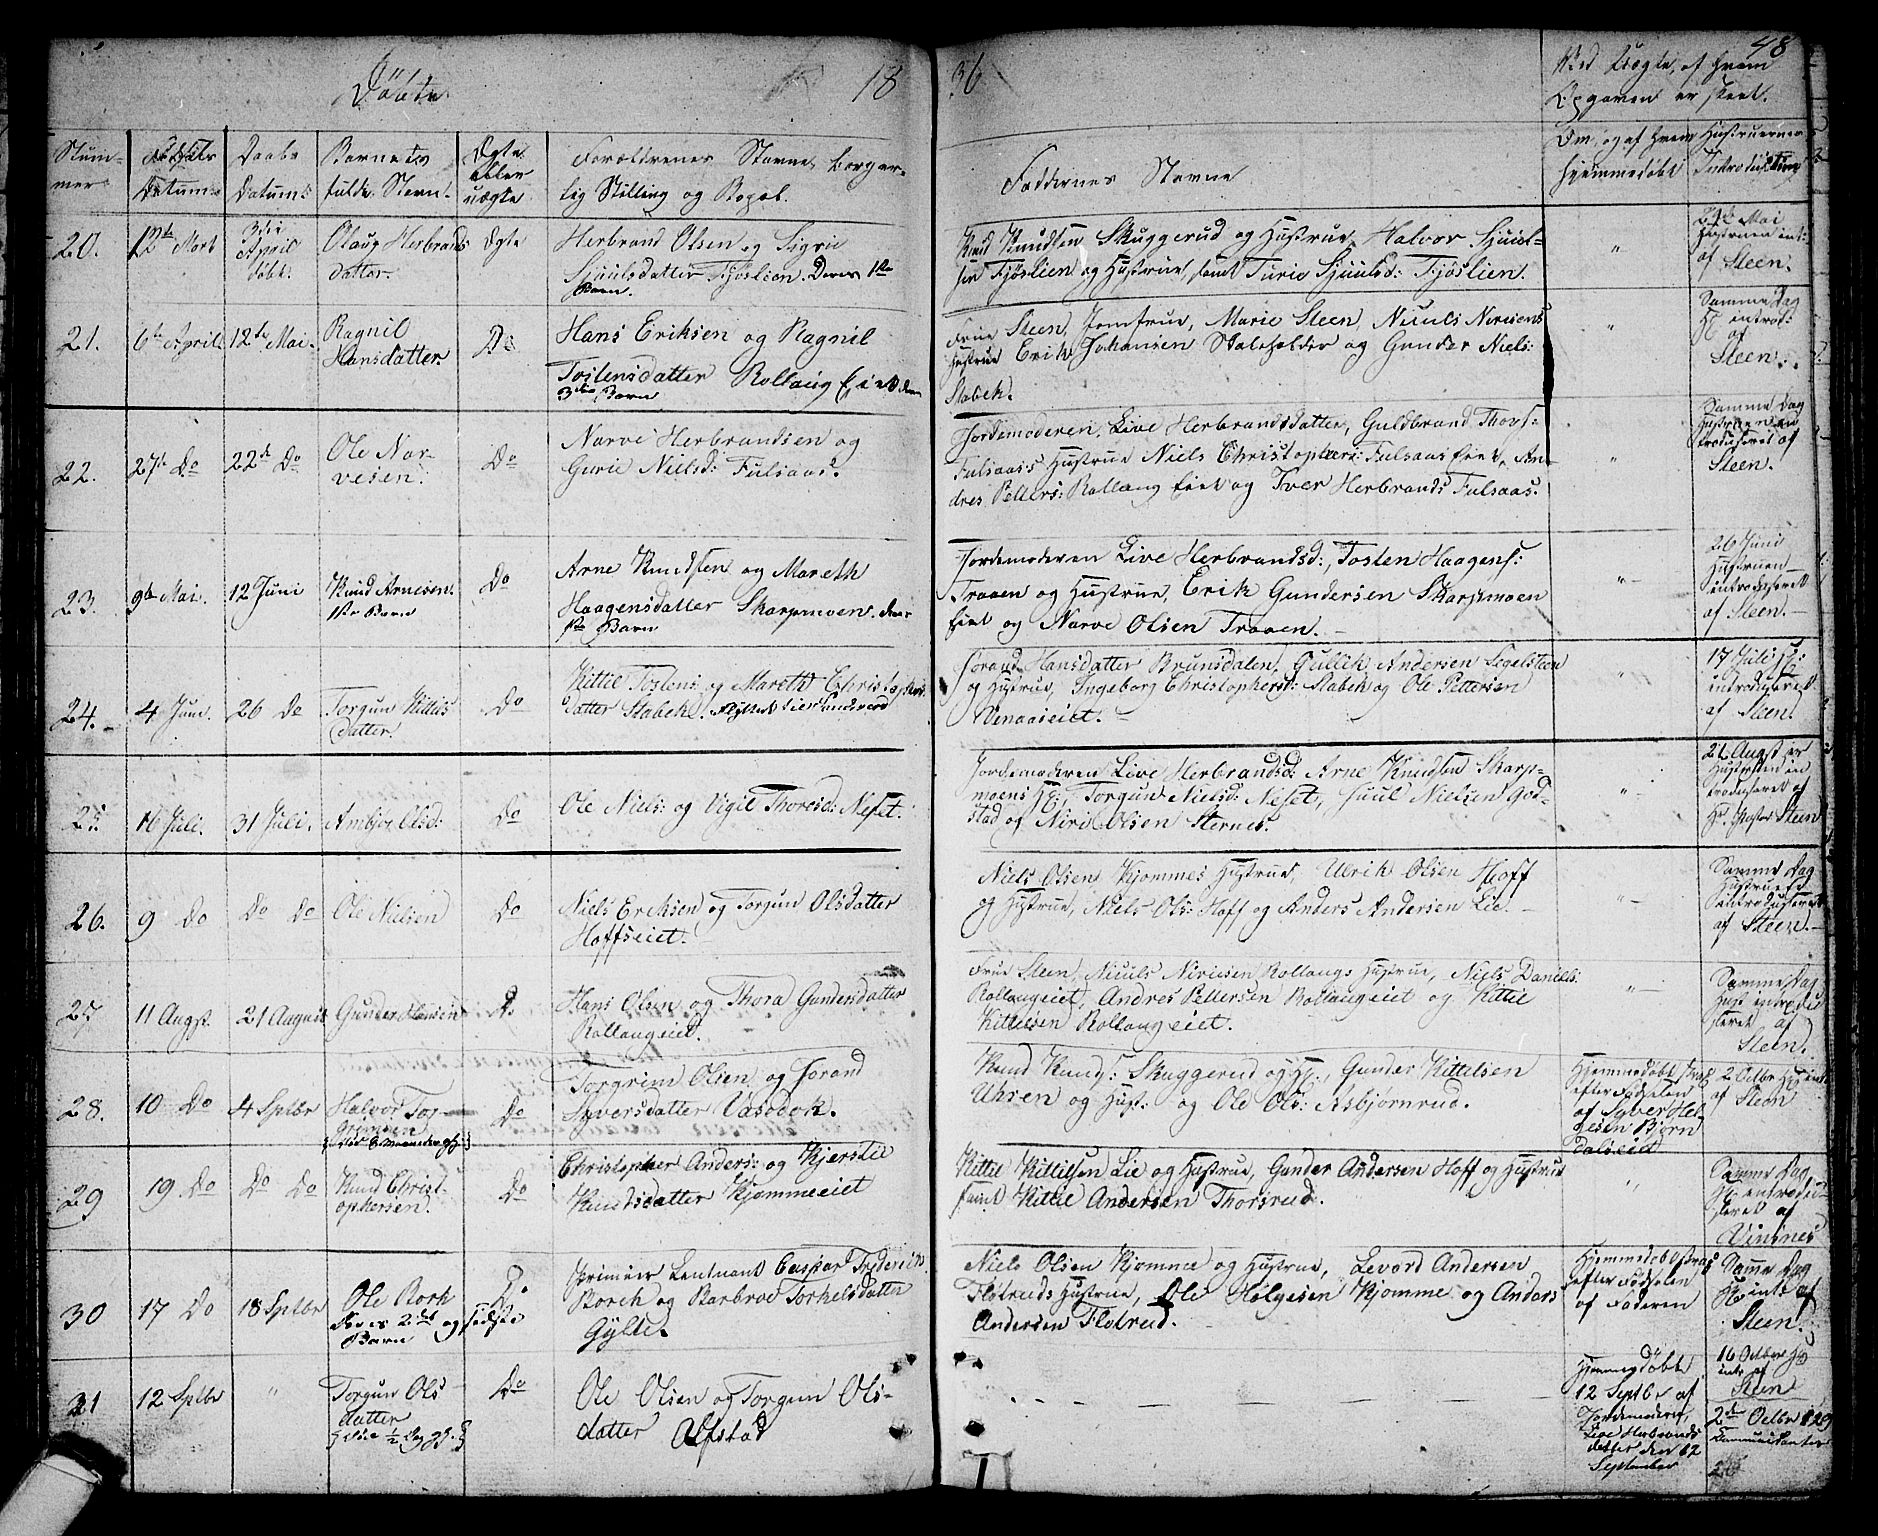 Döbte 18 36 48
Ved Uægte, af hvem
Opgaven er skeet.
Num-
mer
Fødsels
Datum
Daabs
Datum
Barnets
fulde Navn
Ægte
eller
uægte
Forældrenes Navne, borger-
lig Stilling og Bopæl.
Faddernes Navne
Om, og af hvem
hjemmedöbt
Hustruernes
20.
12te Mart
April
döbt.
Olaug Herbrands
datter
Ægte
Herbrand Olsen og Sigrie
Sjuulsdatter Fjöslien. Deres 1ste
Barn.
Knud Knudsen Skuggerud og Hustrue, Halvor Sjuul-
sen Fjöslien og Hustrue, samt Turie Sjuulsd: Fjöslien.
"
Mai
Hustruen int:
af Steen.
21.
6te April
12te Mai.
Ragnil
Hansdatter
Do
Hans Eriksen og Ragnil
Tostensdatter Rollaug Eiet deres
3die Barn
Frue Steen, Jomfrue, Marie Steen, Niuuls Nirisens
Hustrue Erik Johansen Stabeholder og Gunder Niels:
Stabek.
"
Samme Dag
H: introd:
af
Steen.
22.
27de Do
22de Do
Ole Nar-
vesen.
Do
Narve Herbrandsen og
Gurie Nielsd: Fulsaas.
Jordemoderen, Live Herbrandsdatter, Guldbrand Thors:
Fulsaass Hustrue Niels Christophers: Fulsaas Eiet, An-
dres Petters: Rollaug Eiet og Iver Herbrands Fulsaas.
"
Samme Dag
Hustruen in
troduseret af
Steen.
23.
9de Mai.
12 Juni
Knud Arnesen.
1ste Barn
Do
Arne Knudsen og Mareth
Haagensdatter Skarpmoen. deres
1ste Barn
Jordemoderen Live Herbrandsd:, Tosten Haagens:
Traaen og Hustrue, Erik Gundersen Skarpmoen
Eiet og Narve Olsen Traaen.
"
26 Juni
Hustruen
introduseret
af Steen.
24.
4 Juni.
26 Do
Torgun Kittils
datter.
Do
Kittil Tostens: og Mareth Christophers
datter Stabek.
Jörand Hansdatter Brunsdalen, Gullik Andersen Segelsteen
og Hustrue, Ingeborg Christophersd: Stabek og Ole Pettersen
Venaaseiet.
"
17 Juli H:
introduseret
af Steen.
25.
16 Juli.
31 Juli.
Ambjor Olsd:
Do
Ole Niels: og Vigil Thoresd: Neset.
Jordemoderen Live Herbrandsd: Arne Knudsen Skarp-
moens H:, Torgun Nielsd: Neset, Juul Nielsen God-
stad og Niri Olsen Sternes.
"
21 Augst er
Hustruen in
troduseret af
Hr. Pastor Steen
26.
9 Do
Do Do
Ole Nielsen
Do
Niels Eriksen og Torgun Olsdatter
Hoffseiet.
Niels Olsen Kjommes Hustrue, Ulrik Olsen Hoff
og Hustrue, Niels Ols: Hoff og Anders Andersen Lie.
"
Samme Dag
Hustruen
introduseret
af Steen.
27
11 Augst.
21 August
Gunder Hansen
Do
Hans Olsen og Thora Gundersdatter
Rollaugeiet.
Frue Steen, Niuuls Nirisen Rollaugs Hustrue, Niels Daniels:
Rollaugeiet, Andres Pettersen Rollaugeiet og Kittil
Kittelsen Rollaugeiet.
"
Samme Dag
Hust introdu
seret af
Steen.
28.
10 Do
4 Sptbr
Halvor Tor-
grimsen
Do
Torgrim Olsen og Jorand
Syversdatter Vasdok.
Knud Knuds: Skuggerud og H:, Gunder Kittelsen
Uhren og Hust: og Ole Ols: Asbjørnrud.
Hjemmedöbt strax
efter Födselen
af Syver Hel-
gesen Björn
dalseiet
2 Octbr H: int:
af Steen
29
19 Do
Do Do
Knud Christ-
ophersen.
Do
Christopher Anders: og Kjerstie
Knudsdatter Kjommeeiet
Kittil Kittilsen Lie og Hustrue, Gunder Andersen Hoff og Hustrue
samt Kittil Andersen Thorsrud.
"
Samme Dag,
H: introdu-
seret af
Vinsnes
30
17 Do
18 Sptbr
Ole Bork
Deres 2det og sidste
Barn
Do
Primier Leutnant Caspar Frederik
Borch og Barbroe Torkelsdatter
Gylte.
Niels Olsen Kjomme og Hustrue, Levord Andersen
Flötruds Hustrue, Ole Helgesen Kjomme og Anders
Andersen Flötrud.
Hjemmedöbt strax
efter Födselen
af Faderen
Samme Dag
H: int: af
Steen.
31
12 Sptbr
"
Torgun Ols
datter
Do
Ole Olsen og Torgun Ols-
datter Alfstad
Hjemmedöbt
12 Septbr af
Jordemoderen,
Live Herbrands
datter den 12
September
16 Octbr H:
int: af
Steen
2de Octbr 129
Communicanter